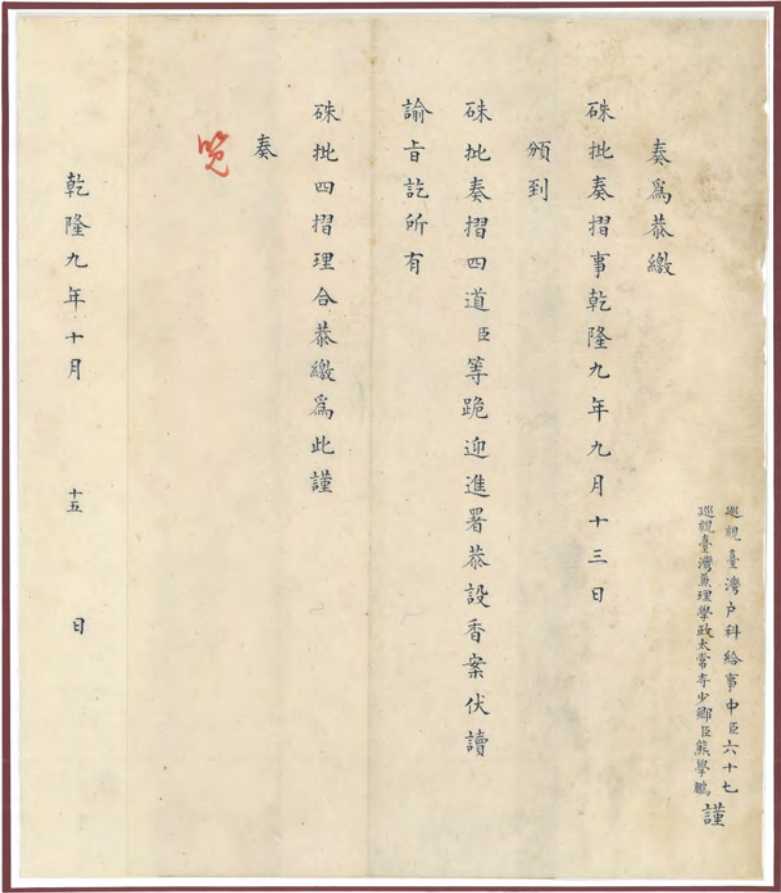 巡視臺灣戶科給事中臣六十七
巡視臺灣兼理學政太常寺少卿臣熊學鵬
謹
奏爲恭繳
硃批奏摺事乾隆九年九月十三日
頒到
硃批奏摺四道臣等跪迎進署恭設香案伏讀
諭旨訖所有
硃批四摺理合恭繳爲此謹
奏
覽
乾隆九年十月十五日